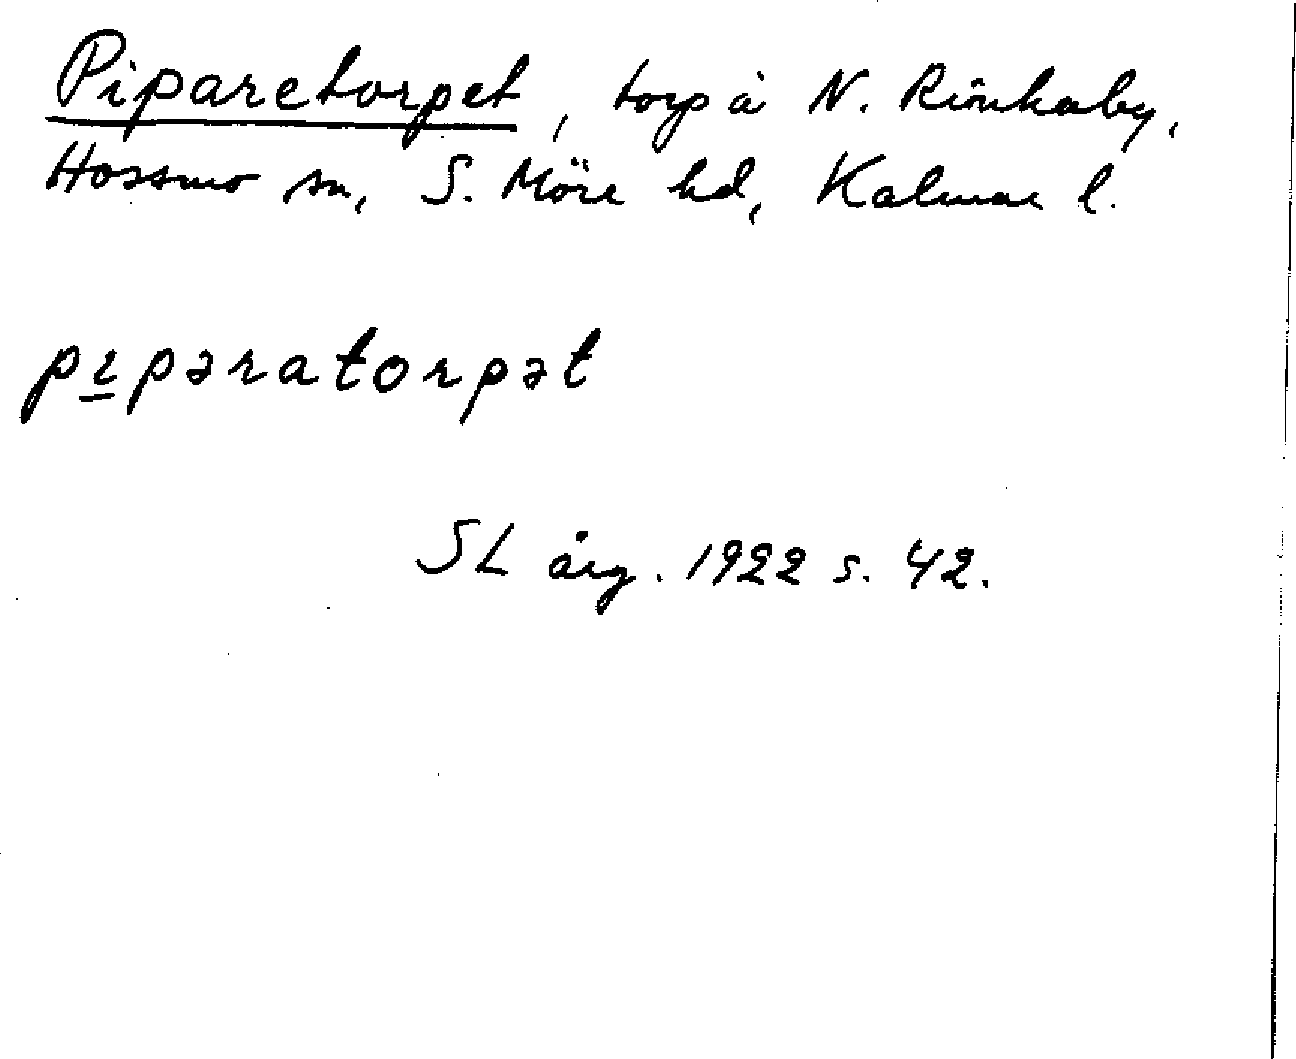 Piparetorpet, torp å N. Rinkaby,
Hossmo sn, S. Möre hd, Kalmar l.
pɪpəratorpət
SL årg. 1922 s. 42.